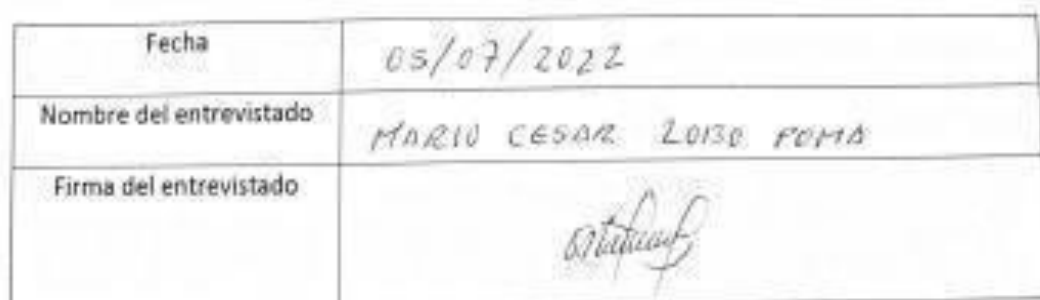 Fecha 05/07/2022
Nombre del entrevistado MARIO CESAR LOBO POMA
Firma del entrevistado